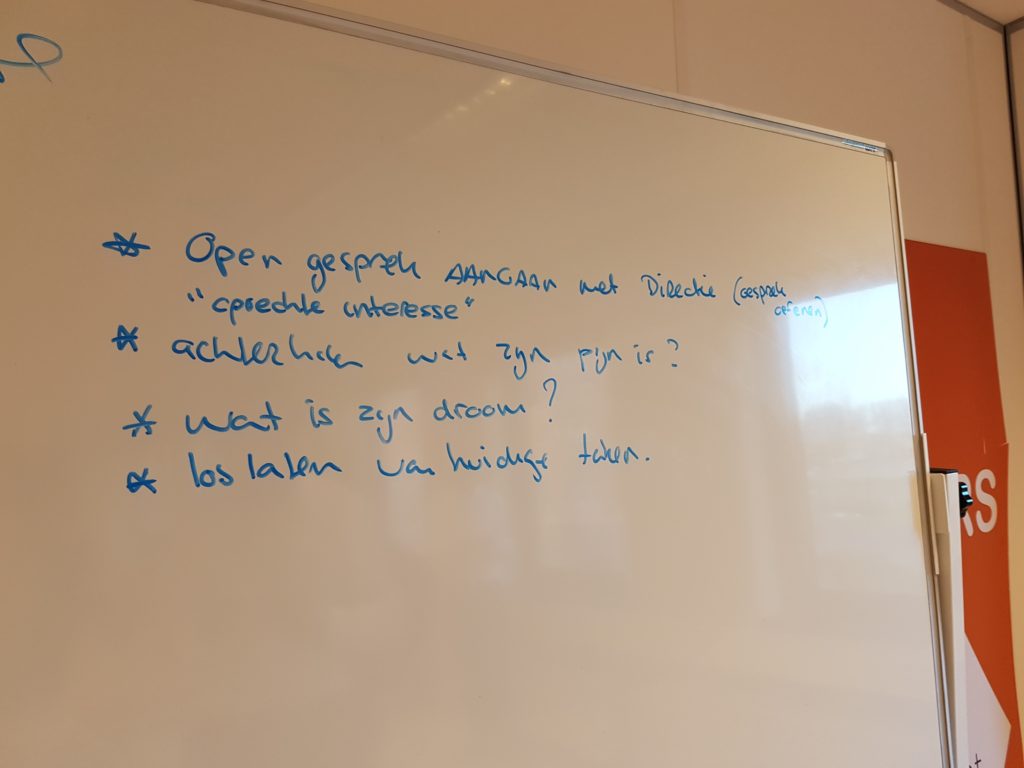 * Open gesprek AANGAAN met Directie (gesprek
oefenen)
"oprechte interesse"
* achterhalen wat zijn pijn is?
* wat is zijn droom?
* los laten van huidige taken.
RS